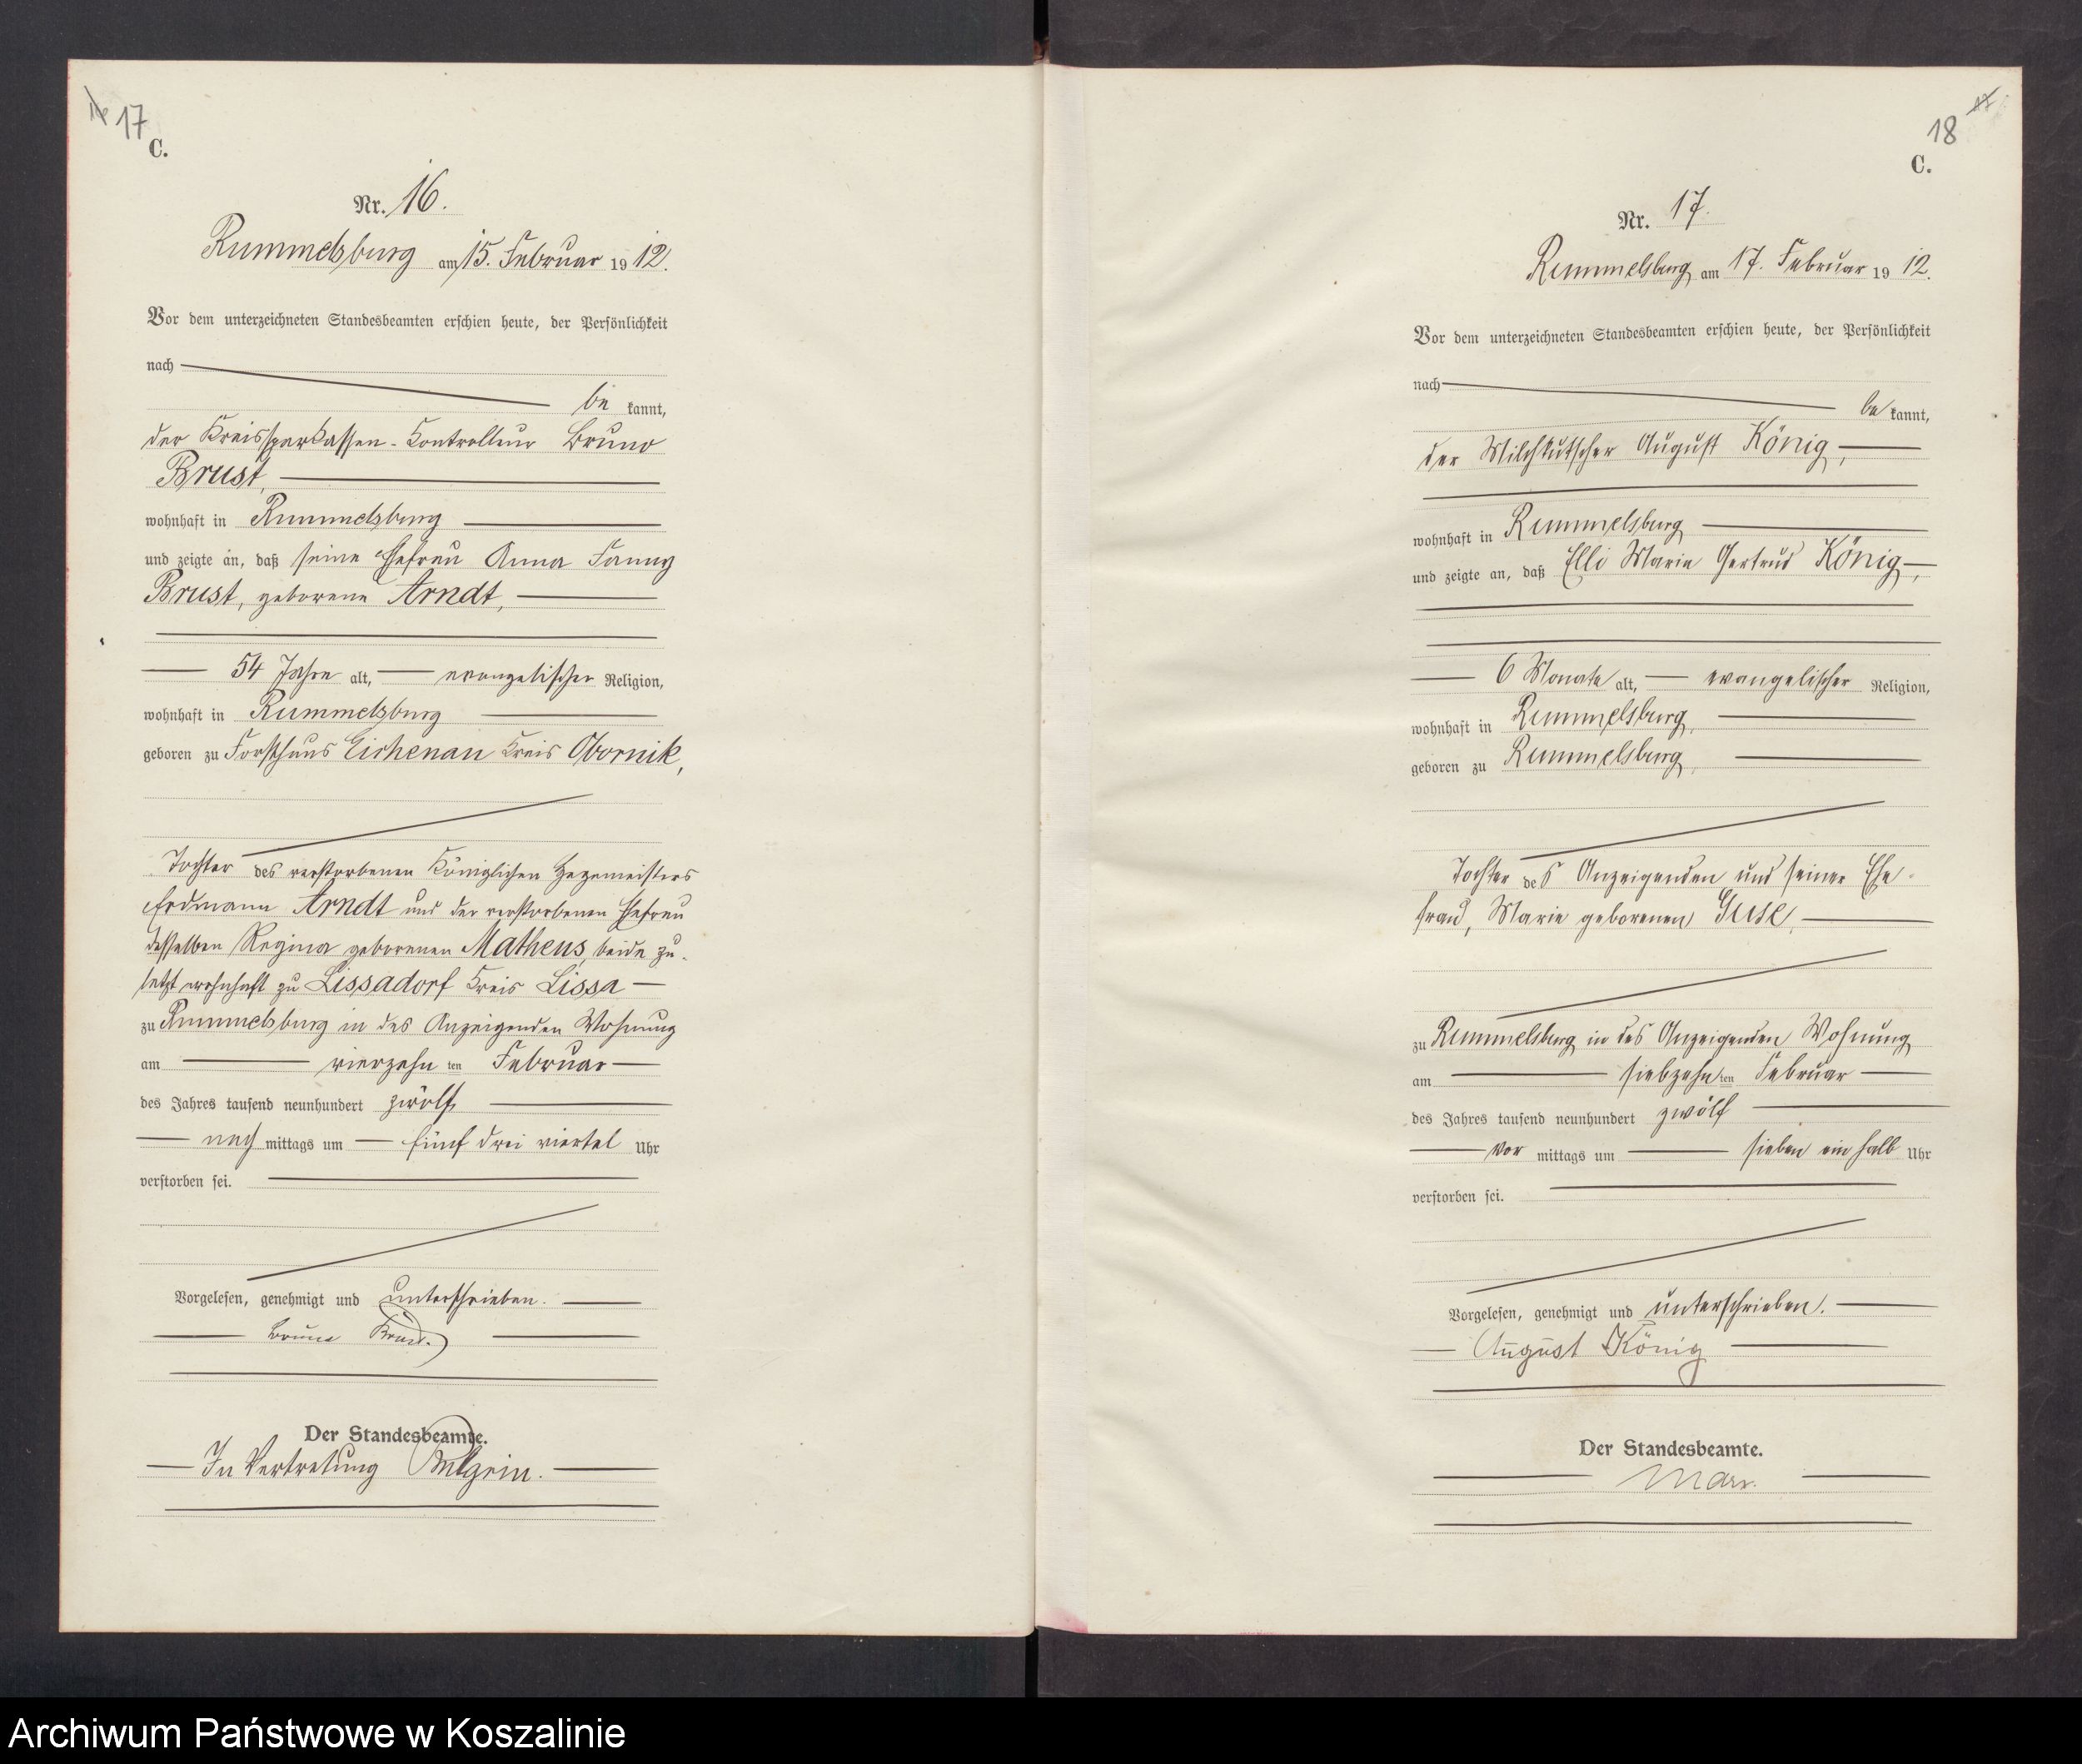 17
C.
Nr. 16.
Rummelsburg am 15. Februar 1912.
Vor dem unterzeichneten Standesbeamten erschien heute, der Persönlichkeit
nach
be kannt,
der Kreissparkassen-Controlleur Bruno
Brust,
wohnhaft in Rummelsburg
und zeigte an, daß seine Ehefrau Anna Fanny
Brust, geborene Arndt,
54 Jahre alt, evangelischer Religion,
wohnhaft in Rummelsburg
geboren zu Forsthaus Eichenau Kreis Obornik,
Tochter des verstorbenen Königlichen Hegemeisters
Erdmann Arndt und der verstorbenen Ehefrau
desselben Regina geborenen Matheus, beide zu-
letzt wohnhaft zu Lissadorf Kreis Lissa
zu Rummelsburg in des Anzeigenden Wohnung
am vierzehn ten Februar
des Jahres tausend neunhundert zwölf
nach mittags um fünf drei viertel Uhr
verstorben sei.
Vorgelesen, genehmigt und unterschrieben.
Bruno Brust.
Der Standesbeamte.
In Vertretung
18
C.
Nr. 17.
Rummelsburg am 17. Februar 1912.
Vor dem unterzeichneten Standesbeamten erschien heute, der Persönlichkeit
nach
be kannt,
der Milchkutscher August König,
wohnhaft in Rummelsburg
und zeigte an, daß Elli Marie Gertrud König,
6 Monate alt, evangelischer Religion,
wohnhaft in Rummelsburg,
geboren zu Rummelsburg,
Tochter des Anzeigenden und seiner Ehe-
frau, Marie geborenen Guse,
zu Rummelsburg in des Anzeigenden Wohnung
am siebzehn ten Februar
des Jahres tausend neunhundert zwölf
Vor mittags um sieben ein halb Uhr
verstorben sei.
Vorgelesen, genehmigt und unterschrieben.
August König
Der Standesbeamte.
Archiwum Państwowe w Koszalinie